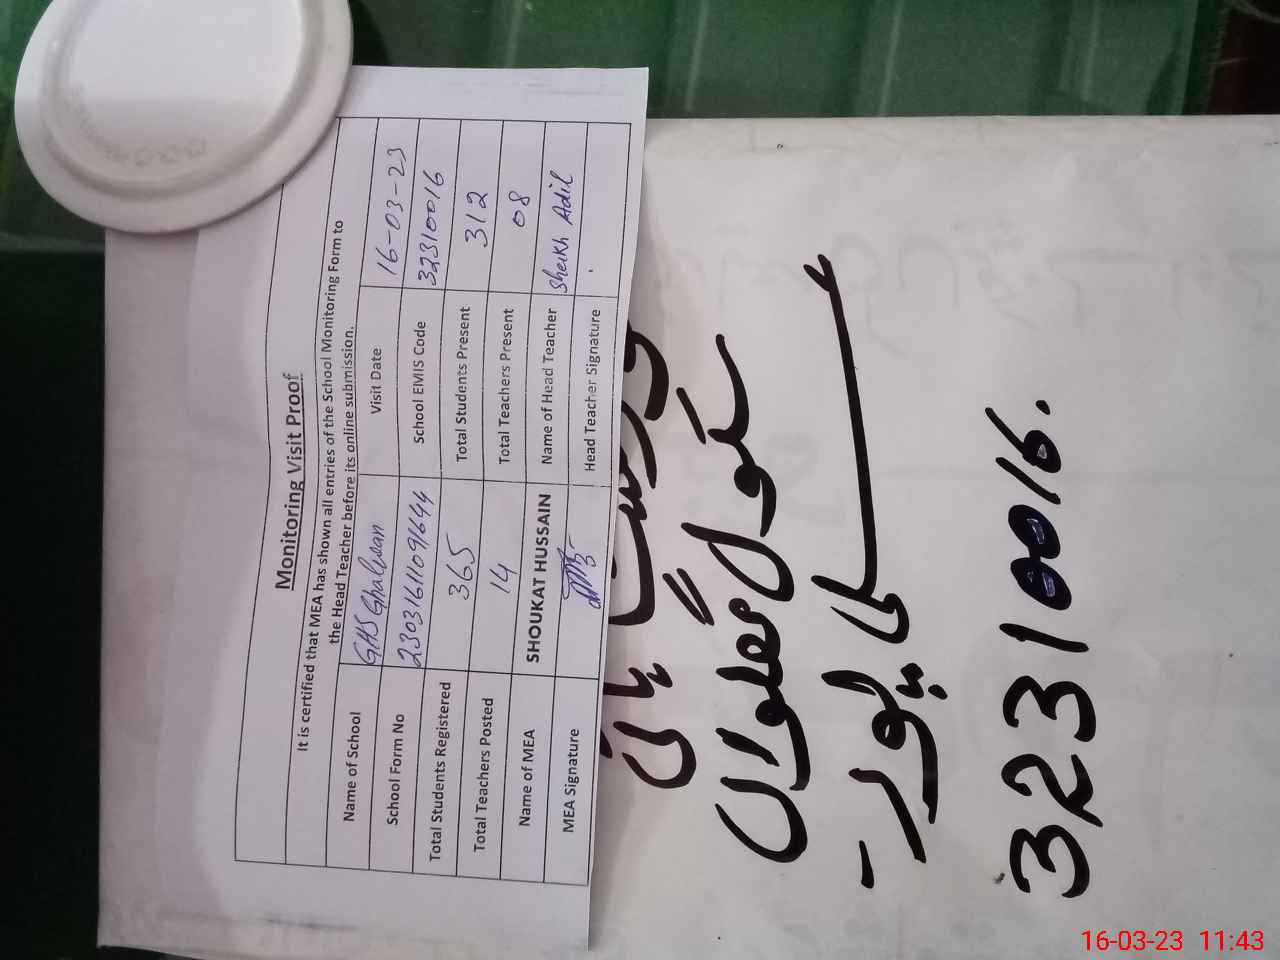 Monitoring Visit Proof
It is certified that MEA has shown all entries of the School Monitoring Form to
the Head Teacher before its online submission.
Name of School GHS Ghalwan Visit Date 16-03-23
School Form No 23031611091644 School EMIS Code 32310016
Total Students Registered 365 Total Students Present 312
Total Teachers Posted 14 Total Teachers Present 08
Name of MEA SHOUKAT HUSSAIN Name of Head Teacher Sheikh Adil
MEA Signature Head Teacher Signature
گورنمنٹ ہائی
سکول گھلواں
علی پور -
32310016.
16-03-23 11:43